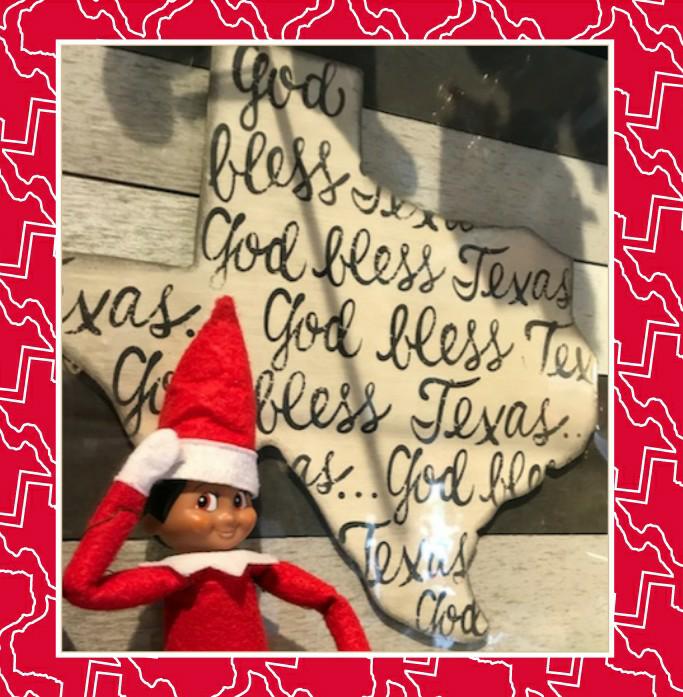 God
bless Texa
God bless Texas
xas. God bless Tex
Go bless Texas..
as... God ble
Texas
God